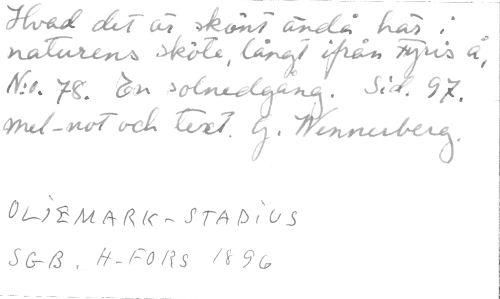 Hvad det är skönt ändå här i
naturens sköte, långt ifrån Fyris å,
N:o. 78. En solnedgång. Sid. 97.
mel-not och text. G. Wennerberg.
OLJEMARK-STADIUS
SGB. H-FORS 1896